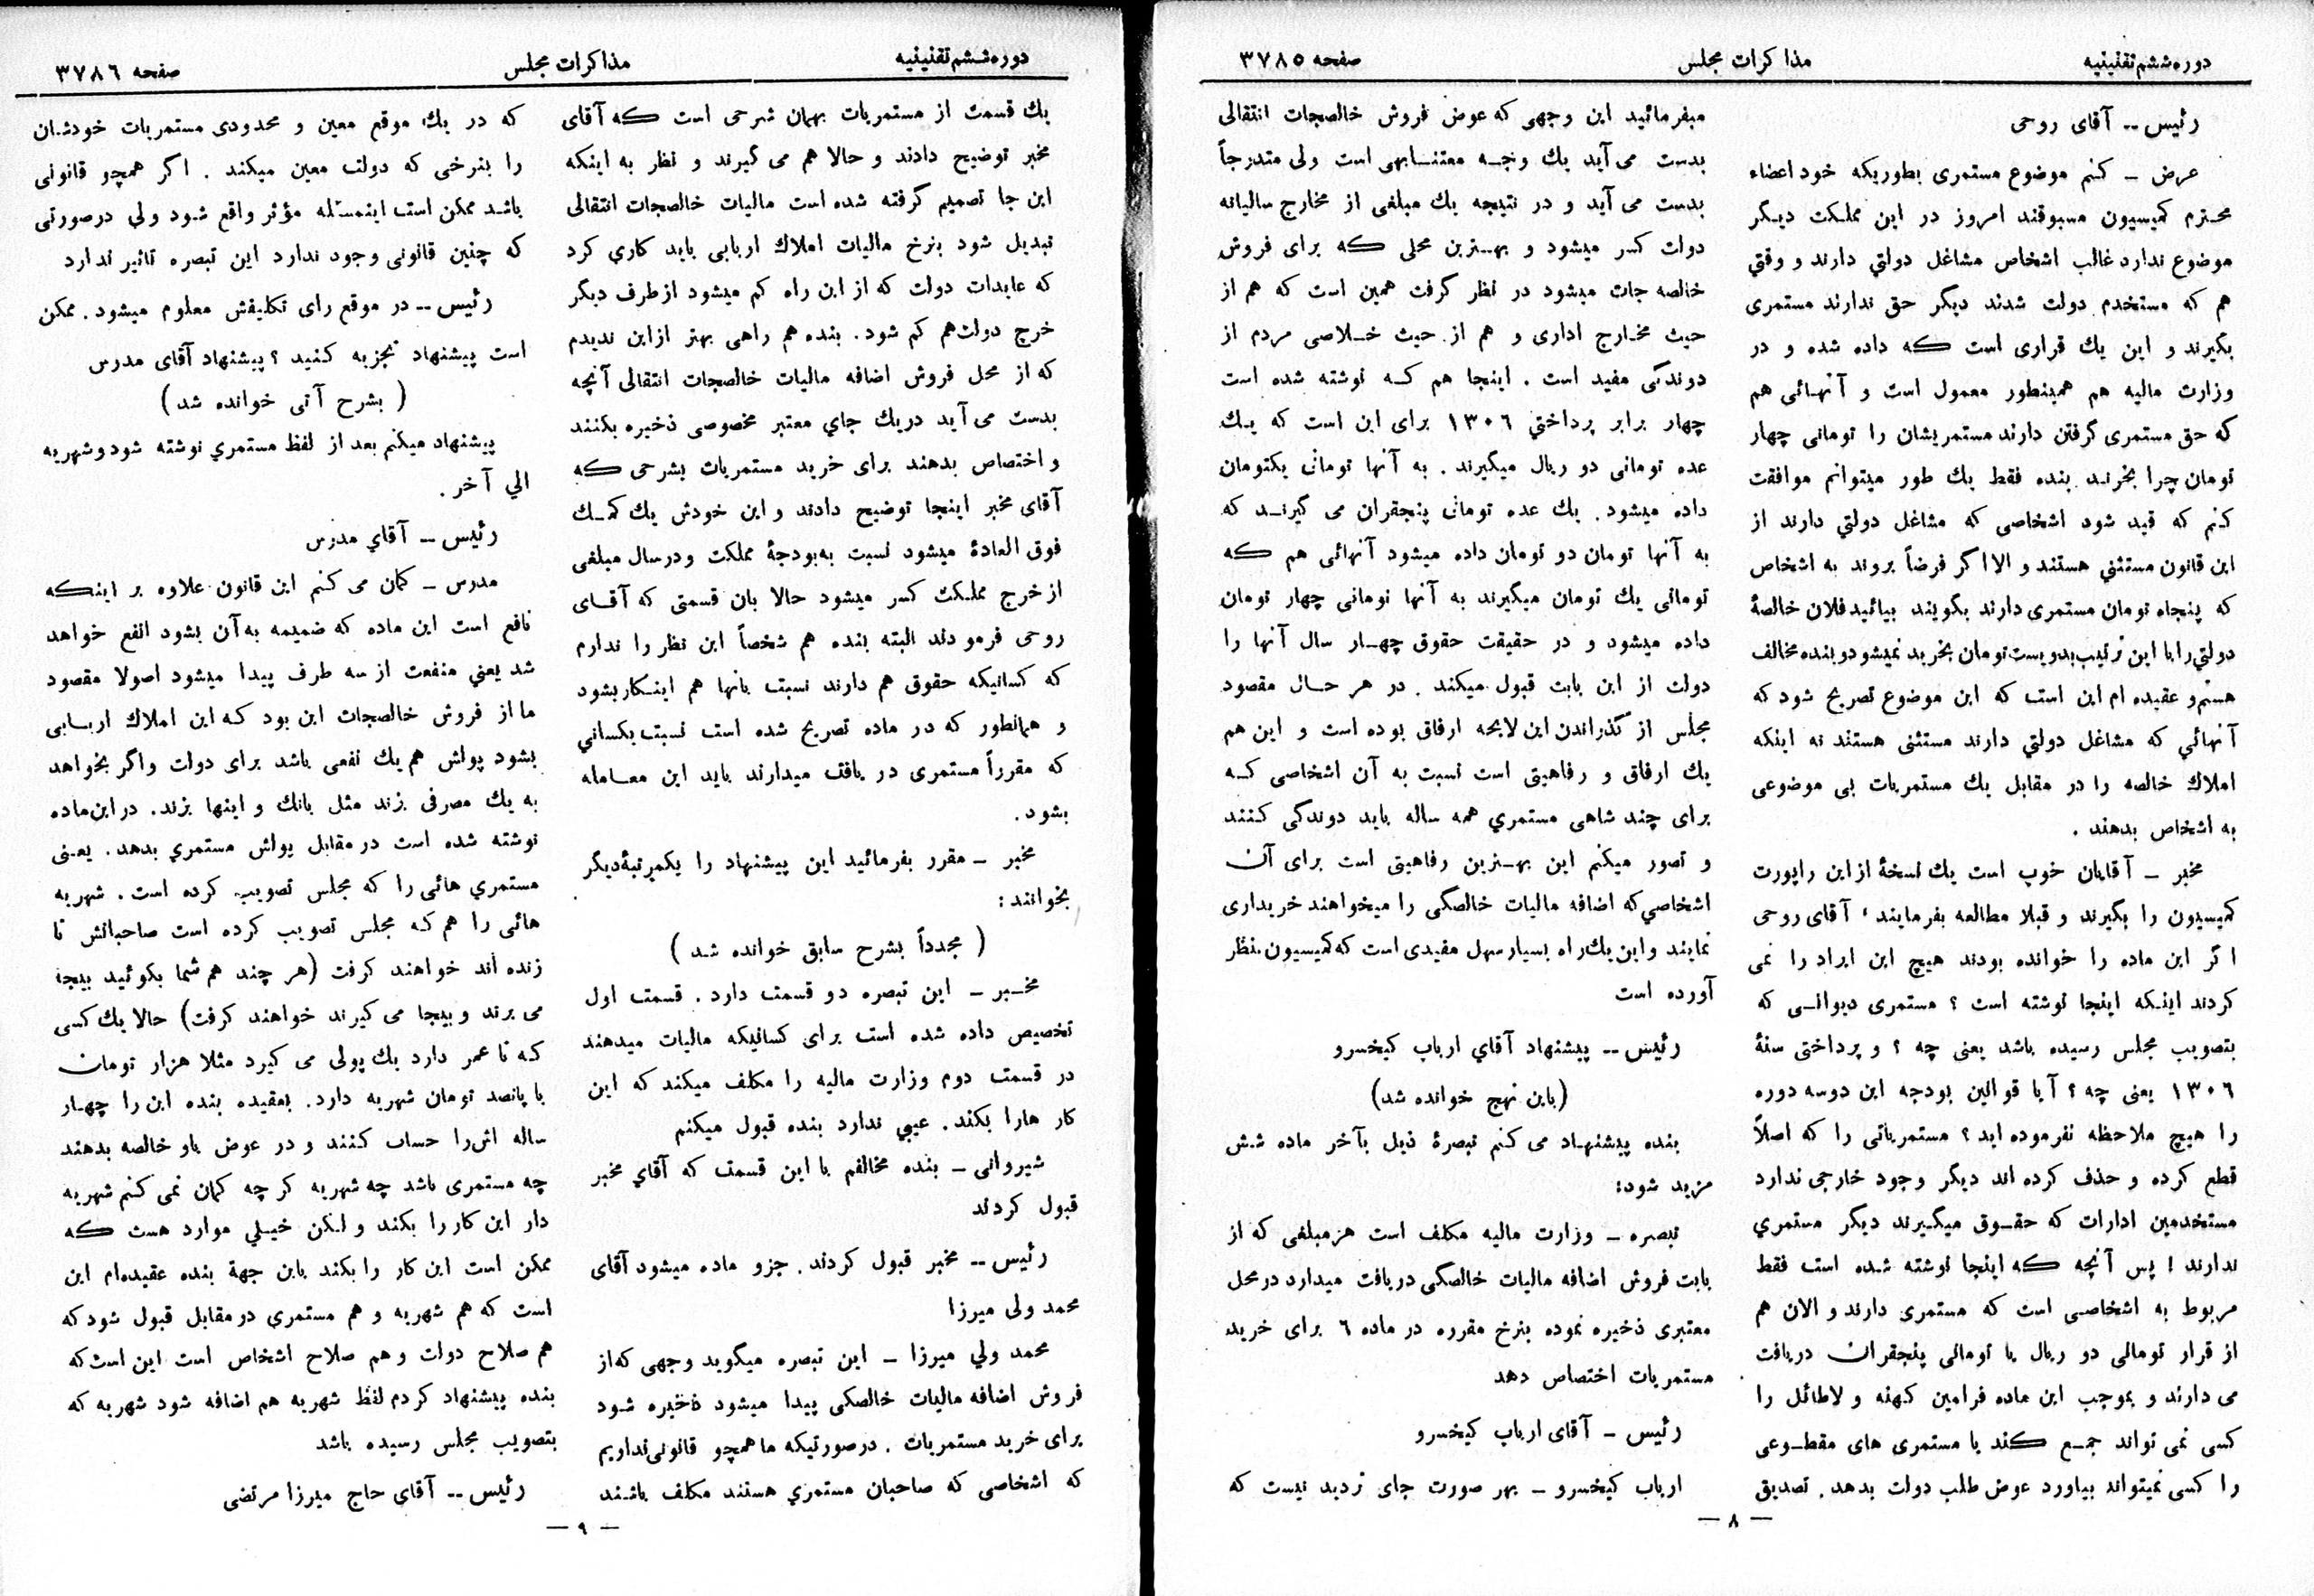 دوره ششم تقنینیه
مذاکرات مجلس
صفحه ۳۷۸۵
رئیس -- آقای روحی
عرض - کنم موضوع مستمری بطوریکه خود اعضاء
محترم کمیسیون مسبوقند امروز در این مملکت دیگر
موضوع ندارد غالب اشخاص مشاغل دولتي دارند و وقتي
هم که مستخدم دولت شدند دیگر حق ندارند مستمری
بگیرند و این یك قراری است که داده شده و در
وزارت مالیه هم همینطور معمول است و آنهائی هم
که حق مستمری گرفتن دارند مستمریشان را تومانی چهار
تومان چرا بخرند بنده فقط یك طور میتوانم موافقت
کنم که قید شود اشخاصی که مشاغل دولتي دارند از
این قانون مستثني هستند و الا اگر فرضاً بروند به اشخاص
که پنجاه تومان مستمری دارند بگویند بیائید فلان خالصهٔ
دولتي را با این ترتیب بدویست تومان بخرید نمیشود و بنده مخالف
هستم و عقیده ام این است که این موضوع تصریح شود که
آنهائي که مشاغل دولتي دارند مستثنی هستند نه اینکه
املاك خالصه را در مقابل یك مستمریات بی موضوعی
به اشخاص بدهند .
مخبر - آقایان خوب است یك نسخهٔ از این راپورت
کمیسیون را بگیرند و قبلا مطالعه بفرمایند ، آقای روحی
اگر این ماده را خوانده بودند هیچ این ایراد را نمی
کردند اینکه اینجا نوشته است ؟ مستمری دیوانی که
بتصویب مجلس رسیده باشد یعنی چه ؟ و پرداختی سنهٔ
۱۳۰۶ یعنی چه ؟ آیا قوانین بودجه این دوسه دوره
را هیچ ملاحظه نفرموده اید ؟ مستمریاتی را که اصلاً
قطع کرده و حذف کرده اند دیگر وجود خارجی ندارد
مستخدمین ادارات که حقوق میگیرند دیگر مستمري
ندارند ! پس آنچه که اینجا نوشته شده است فقط
مربوط به اشخاصی است که مستمری دارند و الان هم
از قرار تومانی دو ریال یا تومانی پنجقران دریافت
می دارند و بموجب این ماده فرامین کهنه و لاطائل را
کسی نمی تواند جمع کند یا مستمری های مقطوعی
را کسی نمیتواند بیاورد عوض طلب دولت بدهد . تصدیق
میفرمائید این وجهی که عوض فروش خالصجات انتقالی
بدست می آید یك وجه معتنابهی است ولی متدرجاً
بدست می آید و در نتیجه یك مبلغی از مخارج سالیانه
دولت کسر میشود و بهترین محلی که برای فروش
خالصه جات میشود در نظر گرفت همین است که هم از
حیث مخارج اداری و هم از حیث خلاصی مردم از
دوندگی مفید است . اینجا هم که نوشته شده است
چهار برابر پرداختي ۱۳۰۶ برای این است که یك
عده تومانی دو ریال میگیرند . به آنها تومانی یکتومان
داده میشود . یك عده تومانی پنجقران می گیرند که
به آنها تومان دو تومان داده میشود آنهائی هم که
تومانی یك تومان میگیرند به آنها تومانی چهار تومان
داده میشود و در حقیقت حقوق چهار سال آنها را
دولت از این بابت قبول میکند . در هر حال مقصود
مجلس از گذراندن این لایحه ارفاق بوده است و این هم
یك ارفاق و رفاهیتی است نسبت به آن اشخاصی که
برای چند شاهی مستمري همه ساله باید دوندگی کنند
و تصور میکنم این بهترین رفاهیتی است برای آن
اشخاصي که اضافه مالیات خالصگی را میخواهند خریداری
نمایند و این یك راه بسیار سهل مفیدی است که کمیسیون بنظر
آورده است
رئیس -- پیشنهاد آقاي ارباب کیخسرو
(باین نهج خوانده شد)
بنده پیشنهاد می کنم تبصرهٔ ذیل بآخر ماده شش
مزید شود:
تبصره - وزارت مالیه مکلف است هر مبلغی که از
بابت فروش اضافه مالیات خالصگی دریافت میدارد در محل
معتبری ذخیره نموده بنرخ مقرره در ماده ۶ برای خرید
مستمریات اختصاص دهد
رئیس - آقای ارباب کیخسرو
ارباب کیخسرو - بهر صورت جای تردید نیست که
- ۸ -
دوره ششم تقنینیه
مذاکرات مجلس
صفحه ۳۷۸۶
یك قسمت از مستمریات بهمان شرحی است که آقای
مخبر توضیح دادند و حالا هم می گیرند و نظر به اینکه
این جا تصمیم گرفته شده است مالیات خالصجات انتقالی
تبدیل شود بنرخ مالیات املاك اربابی باید کاري کرد
که عایدات دولت که از این راه کم میشود از طرف دیگر
خرج دولت هم کم شود . بنده هم راهی بهتر از این ندیدم
که از محل فروش اضافه مالیات خالصجات انتقالی آنچه
بدست می آید در یك جاي معتبر مخصوصی ذخیره بکنند
و اختصاص بدهند برای خرید مستمریات بشرحی که
آقای مخبر اینجا توضیح دادند و این خودش یك کمك
فوق العادهٔ میشود نسبت به بودجهٔ مملکت و در سال مبلغی
از خرج مملکت کسر میشود حالا بان قسمتی که آقای
روحی فرمودند البته بنده هم شخصاً این نظر را ندارم
که کسانیکه حقوق هم دارند نسبت بانها هم اینکار بشود
و همانطور که در ماده تصریح شده است نسبت بکساني
که مقرراً مستمری دریافت میدارند باید این معامله
بشود .
مخبر - مقرر بفرمائید این پیشنهاد را یکمرتبهٔ دیگر
بخوانند :
( مجدداً بشرح سابق خوانده شد )
مخبر - این تبصره دو قسمت دارد . قسمت اول
تخصیص داده شده است برای کسانیکه مالیات میدهند
در قسمت دوم وزارت مالیه را مکلف میکند که این
کار هارا بکند . عیبي ندارد بنده قبول میکنم
شیروانی - بنده مخالفم با این قسمت که آقاي مخبر
قبول کردند
رئیس -- مخبر قبول کردند . جزو ماده میشود آقای
محمد ولی میرزا
محمد ولي میرزا - این تبصره میگوید وجهی که از
فروش اضافه مالیات خالصگی پیدا میشود ذخیره شود
برای خرید مستمریات . در صورتیکه ما همچو قانونی نداریم
که اشخاصی که صاحبان مستمري هستند مکلف باشند
که در یك موقع معین و محدودی مستمریات خودشان
را بنرخی که دولت معین میکند . اگر همچو قانونی
باشد ممکن است اینمسئله مؤثر واقع شود ولي در صورتی
که چنین قانونی وجود ندارد این تبصره تاثیر ندارد
رئیس -- در موقع رای تکلیفش معلوم میشود . ممکن
است پیشنهاد تجزیه کنید ؟ پیشنهاد آقای مدرس
( بشرح آتی خوانده شد )
پیشنهاد میکنم بعد از لفظ مستمري نوشته شود و شهریه
الي آخر .
رئیس - آقاي مدرس
مدرس - گمان می کنم این قانون علاوه بر اینکه
نافع است این ماده که ضمیمه به آن بشود انفع خواهد
شد یعني منفعت از سه طرف پیدا میشود اصولا مقصود
ما از فروش خالصجات این بود که این املاك اربابی
بشود پولش هم یك نفعی باشد برای دولت و اگر بخواهد
به یك مصرفی بزند مثل بانك و اینها بزند . در این ماده
نوشته شده است در مقابل پولش مستمري بدهد . یعنی
مستمري هائی را که مجلس تصویب کرده است . شهریه
هائی را هم که مجلس تصویب کرده است صاحبانش تا
زنده اند خواهند گرفت (هر چند هم شما بگوئید بیجا
می برند و بیجا می گیرند خواهند گرفت) حالا یك کسی
که تا عمر دارد یك پولی می گیرد مثلا هزار تومان
یا پانصد تومان شهریه دارد . بعقیده بنده این را چهار
ساله اش را حساب کنند و در عوض باو خالصه بدهند
چه مستمری باشد چه شهریه گر چه گمان نمی کنم شهریه
دار این کار را بکند و لکن خیلي موارد هست که
ممکن است این کار را بکند باین جهة بنده عقیده ام این
است که هم شهریه و هم مستمری در مقابل قبول شود که
هم صلاح دولت و هم صلاح اشخاص است این است که
بنده پیشنهاد کردم لفظ شهریه هم اضافه شود شهریه که
بتصویب مجلس رسیده باشد
رئیس -- آقای حاج میرزا مرتضی
- ۹ -